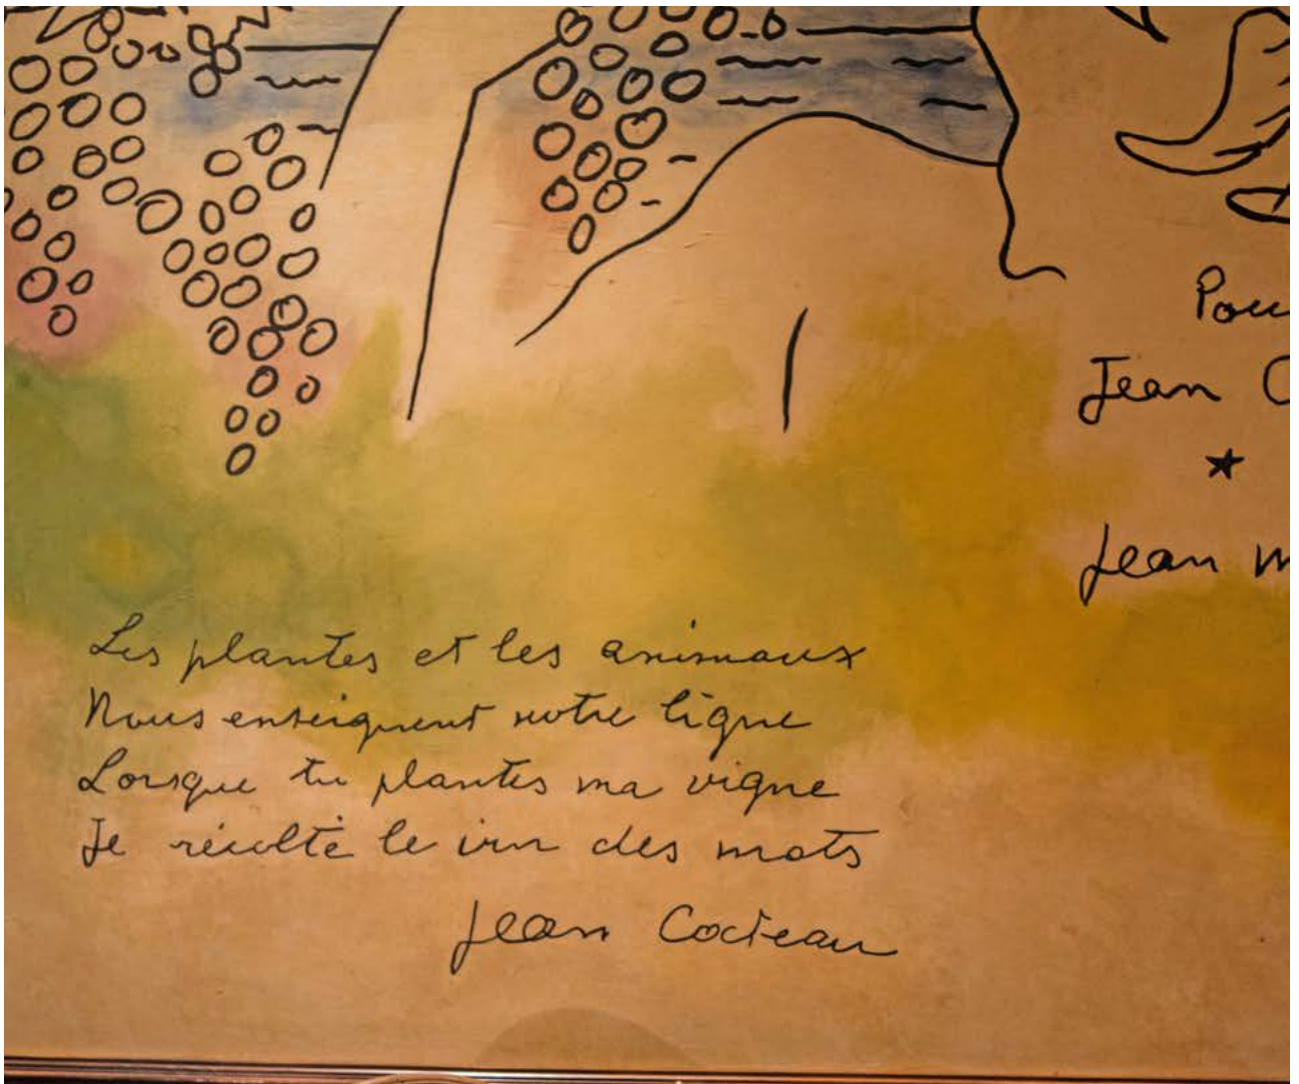 Pou
Jean C
★
Jean m
Les plantes et les animaux
Nous enseignent notre ligne
Lorsque tu plantes ma vigne
Je récolte le vin des mots
Jean Cocteau